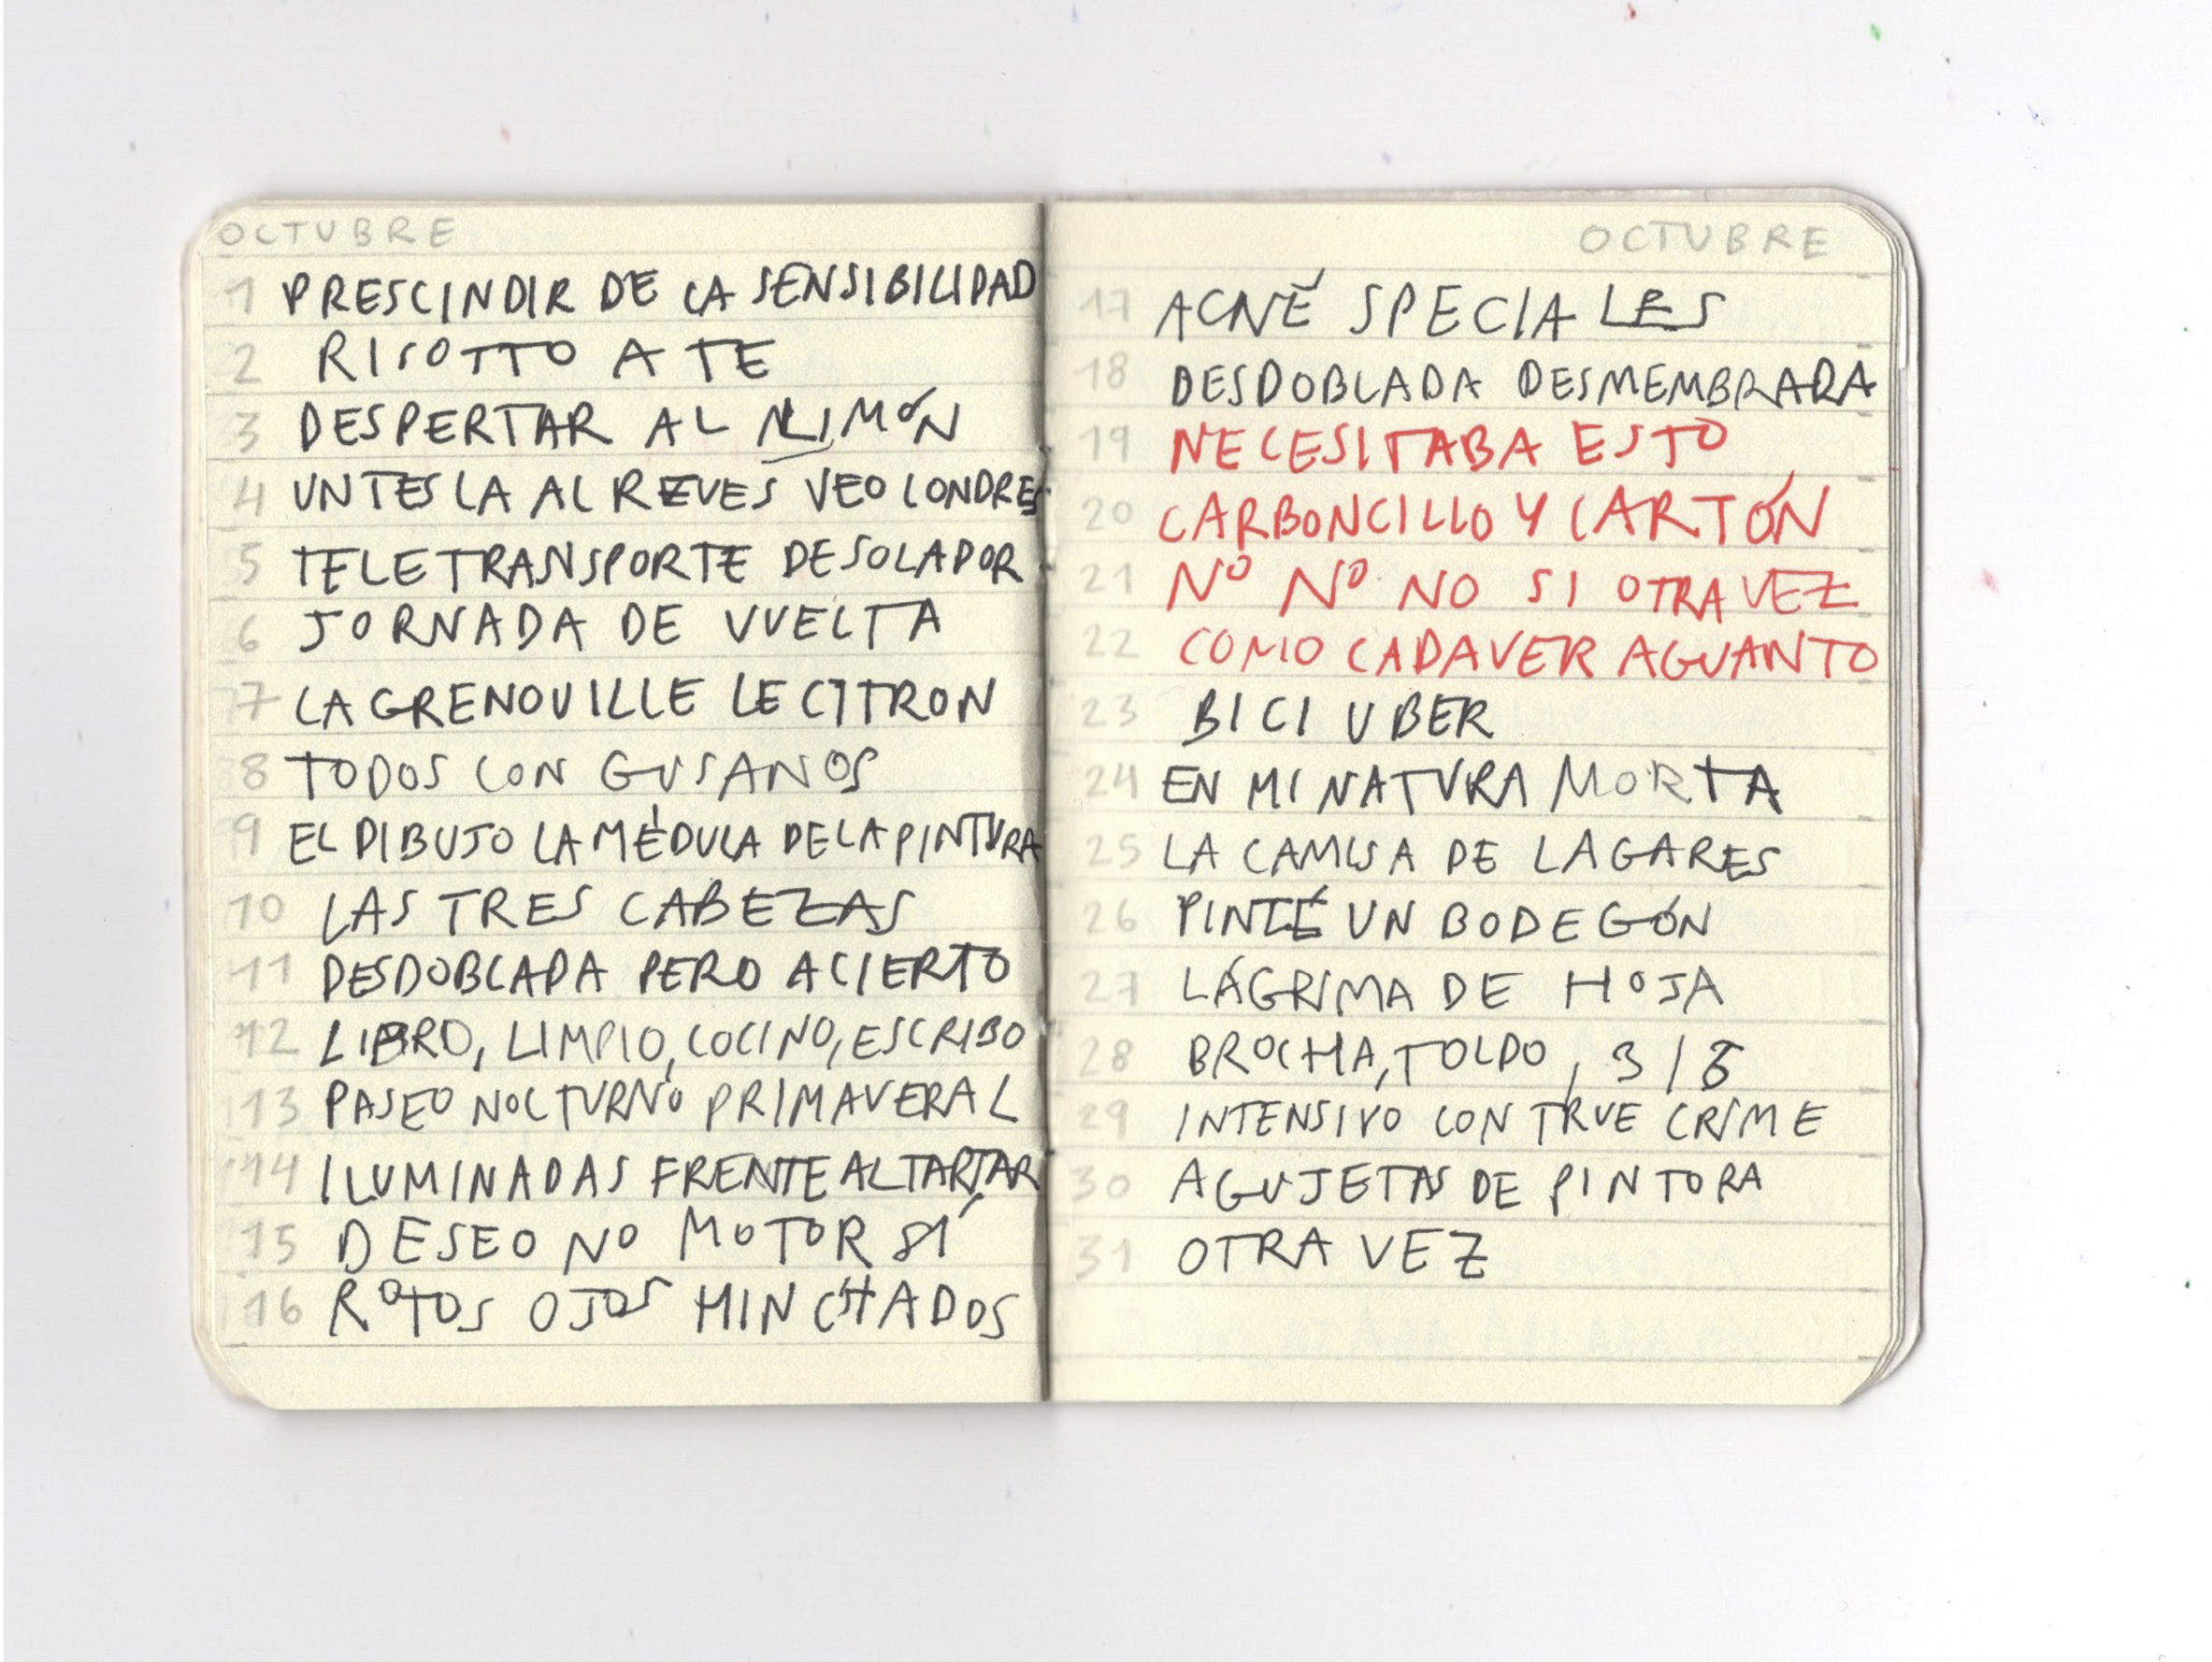 OCTUBRE
1 PRESCINDIR DE LA SENSIBILIDAD
2 RISOTTO A TE
3 DESPERTAR AL LIMÓN
4 UN TESLA AL REVES VEO LONDRES
5 TELETRANSPORTE DESOLADOR
6 JORNADA DE VUELTA
7 LA GRENOUILLE LE CITRON
8 TODOS CON GUSANOS
9 EL DIBUJO LA MÉDULA DE LA PINTURA
10 LAS TRES CABEZAS
11 DESDOBLADA PERO ACIERTO
12 LIBRO, LIMPIO, COCINO, ESCRIBO
13 PASEO NOCTURNO PRIMAVERAL
14 ILUMINADAS FRENTE AL TARTAR
15 DESEO NO MOTOR SÍ
16 ROTOS OJOS HINCHADOS
OCTUBRE
17 ACNÉ SPECIALES
18 DESDOBLADA DESMEMBRADA
19 NECESITABA ESTO
20 CARBONCILLO Y CARTÓN
21 NO NO NO SI OTRA VEZ
22 COMO CADAVER AGUANTO
23 BICI UBER
24 EN MI NATURA MORTA
25 LA CAMISA DE LAGARES
26 PINTÉ UN BODEGÓN
27 LÁGRIMA DE HOJA
28 BROCHA, TOLDO, 3/
29 INTENSIVO CON TRUE CRIME
30 AGUJETAS DE PINTORA
31 OTRA VEZ